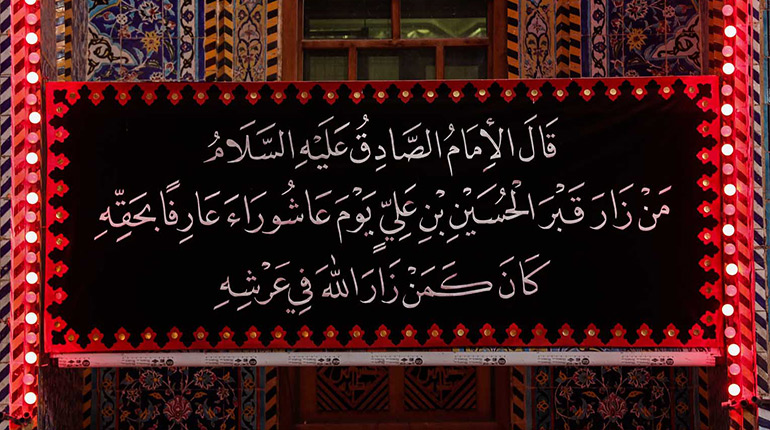 قَالَ الْإِمَامُ الصَّادِقُ عَلَيْهِ السَّلَامُ
مَنْ زَارَ قَبْرَ الْحُسَيْنِ بْنِ عَلِيٍّ يَوْمَ عَاشُورَاءَ عَارِفًا بِحَقِّهِ
كَانَ كَمَنْ زَارَ اللهَ فِي عَرْشِهِ